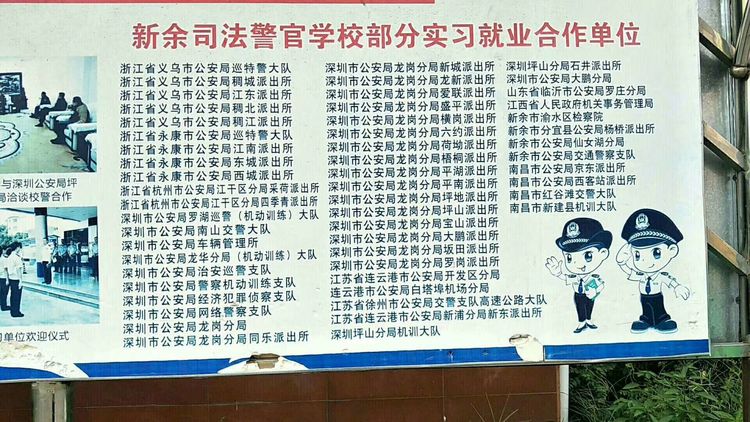 新余司法警官学校部分实习就业合作单位
浙江省义乌市公安局巡特警大队
浙江省义乌市公安局稠城派出所
浙江省义乌市公安局江东派出所
浙江省义乌市公安局稠北派出所
浙江省义乌市公安局稠江派出所
浙江省永康市公安局巡特警大队
浙江省永康市公安局江南派出所
浙江省永康市公安局东城派出所
浙江省永康市公安局西城派出所
浙江省杭州市公安局江干区分局采荷派出所
浙江省杭州市公安局江干区分局四季青派出所
深圳市公安局罗湖巡警（机动训练）大队
深圳市公安局南山交警大队
深圳市公安局车辆管理所
深圳市公安局龙华分局（机动训练）大队
深圳市公安局治安巡警支队
深圳市公安局警察机动训练支队
深圳市公安局经济犯罪侦察支队
深圳市公安局网络警察支队
深圳市公安局龙岗分局
深圳市公安局龙岗分局同乐派出所
深圳市公安局龙岗分局新城派出所
深圳市公安局龙岗分局龙新派出所
深圳市公安局龙岗分局爱联派出所
深圳市公安局龙岗分局盛平派出所
深圳市公安局龙岗分局横岗派出所
深圳市公安局龙岗分局六约派出所
深圳市公安局龙岗分局荷坳派出所
深圳市公安局龙岗分局梧桐派出所
深圳市公安局龙岗分局平湖派出所
深圳市公安局龙岗分局平南派出所
深圳市公安局龙岗分局坪地派出所
深圳市公安局龙岗分局坪山派出所
深圳市公安局龙岗分局宝山派出所
深圳市公安局龙岗分局大鹏派出所
深圳市公安局龙岗分局坂田派出所
深圳市公安局龙岗分局罗岗派出所
江苏省连云港市公安局开发区分局
连云港市公安局白塔埠机场分局
江苏省徐州市公安局交警支队高速公路大队
江苏省连云港市公安局新浦分局新东派出所
深圳坪山分局机训大队
深圳坪山分局石井派出所
深圳市公安局大鹏分局
山东省临沂市公安局罗庄分局
江西省人民政府机关事务管理局
新余市渝水区检察院
新余市分宜县公安局杨桥派出所
新余市公安局仙女湖分局
新余市公安局交通警察支队
南昌市公安局京东派出所
南昌市公安局西客站派出所
南昌市红谷滩交警大队
南昌市新建县机训大队
与深圳公安局坪
局洽谈校警合作
单位欢迎仪式